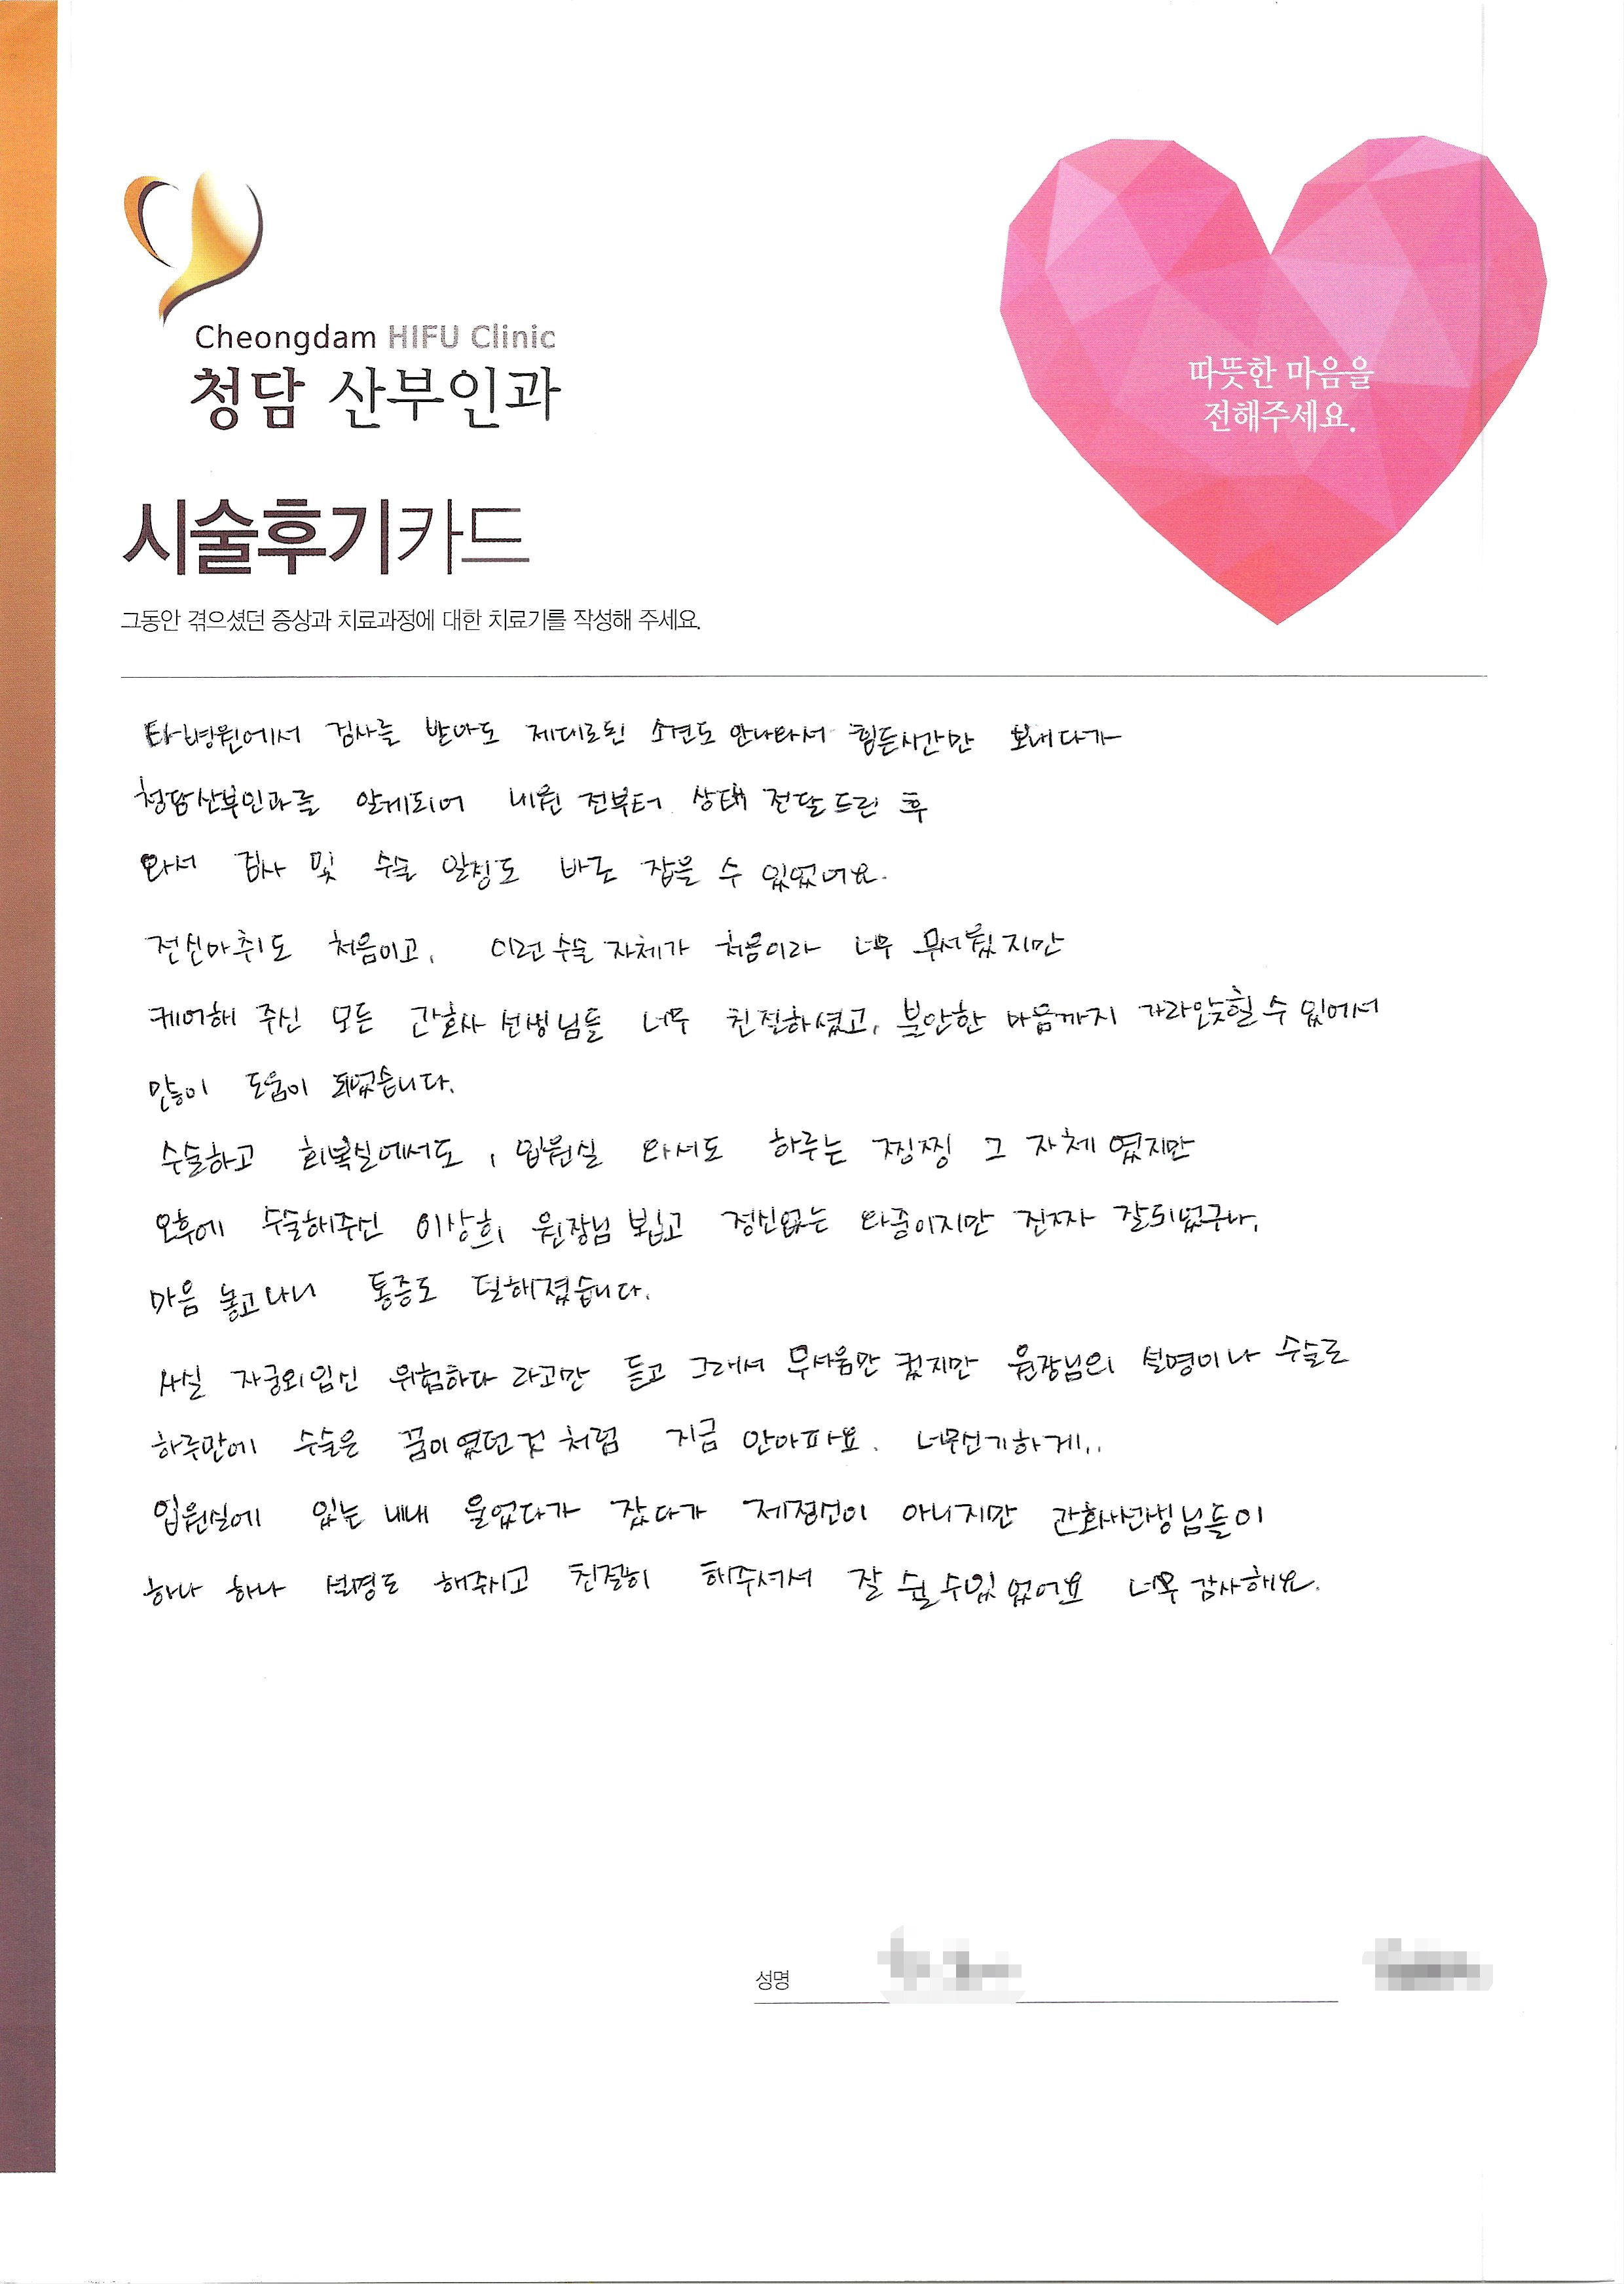 Cheongdam HIFU Clinic
청담 산부인과
따뜻한 마음을
전해주세요.
시술후기카드
그동안 겪으셨던 증상과 치료과정에 대한 치료기를 작성해 주세요.
타병원에서 검사를 받아도 제대로된 소견도 안나와서 힘든시간만 보내다가
청담산부인과를 알게되어 내원 전부터 상태 전달드린 후
와서 검사 및 수술 일정도 바로 잡을 수 있었어요.
전신마취도 처음이고, 이런 수술 자체가 처음이라 너무 무서웠지만
케어해 주신 모든 간호사 선생님들 너무 친절하셨고, 불안한 마음까지 가라앉힐 수 있어서
많이 도움이 되었습니다.
수술하고 회복실에서도, 입원실 와서도 하루는 찡찡 그 자체 였지만
오후에 수술해주신 이상희 원장님 뵙고 정신없는 와중이지만 진짜 잘되었구나,
마음 놓고나니 통증도 덜해졌습니다.
사실 자궁외임신 위험하다 라고만 듣고 그래서 무서움만 컸지만 원장님의 설명이나 수술로
하루만에 수술은 꿈이였던것 처럼 지금 안아파요. 너무신기하게..
입원실에 있는 내내 울었다가 잤다가 제정신이 아니지만 간호사선생님들이
하나 하나 설명도 해주시고 친절히 해주셔서 잘 쉴수있 었어요 너무 감사해요.
성명